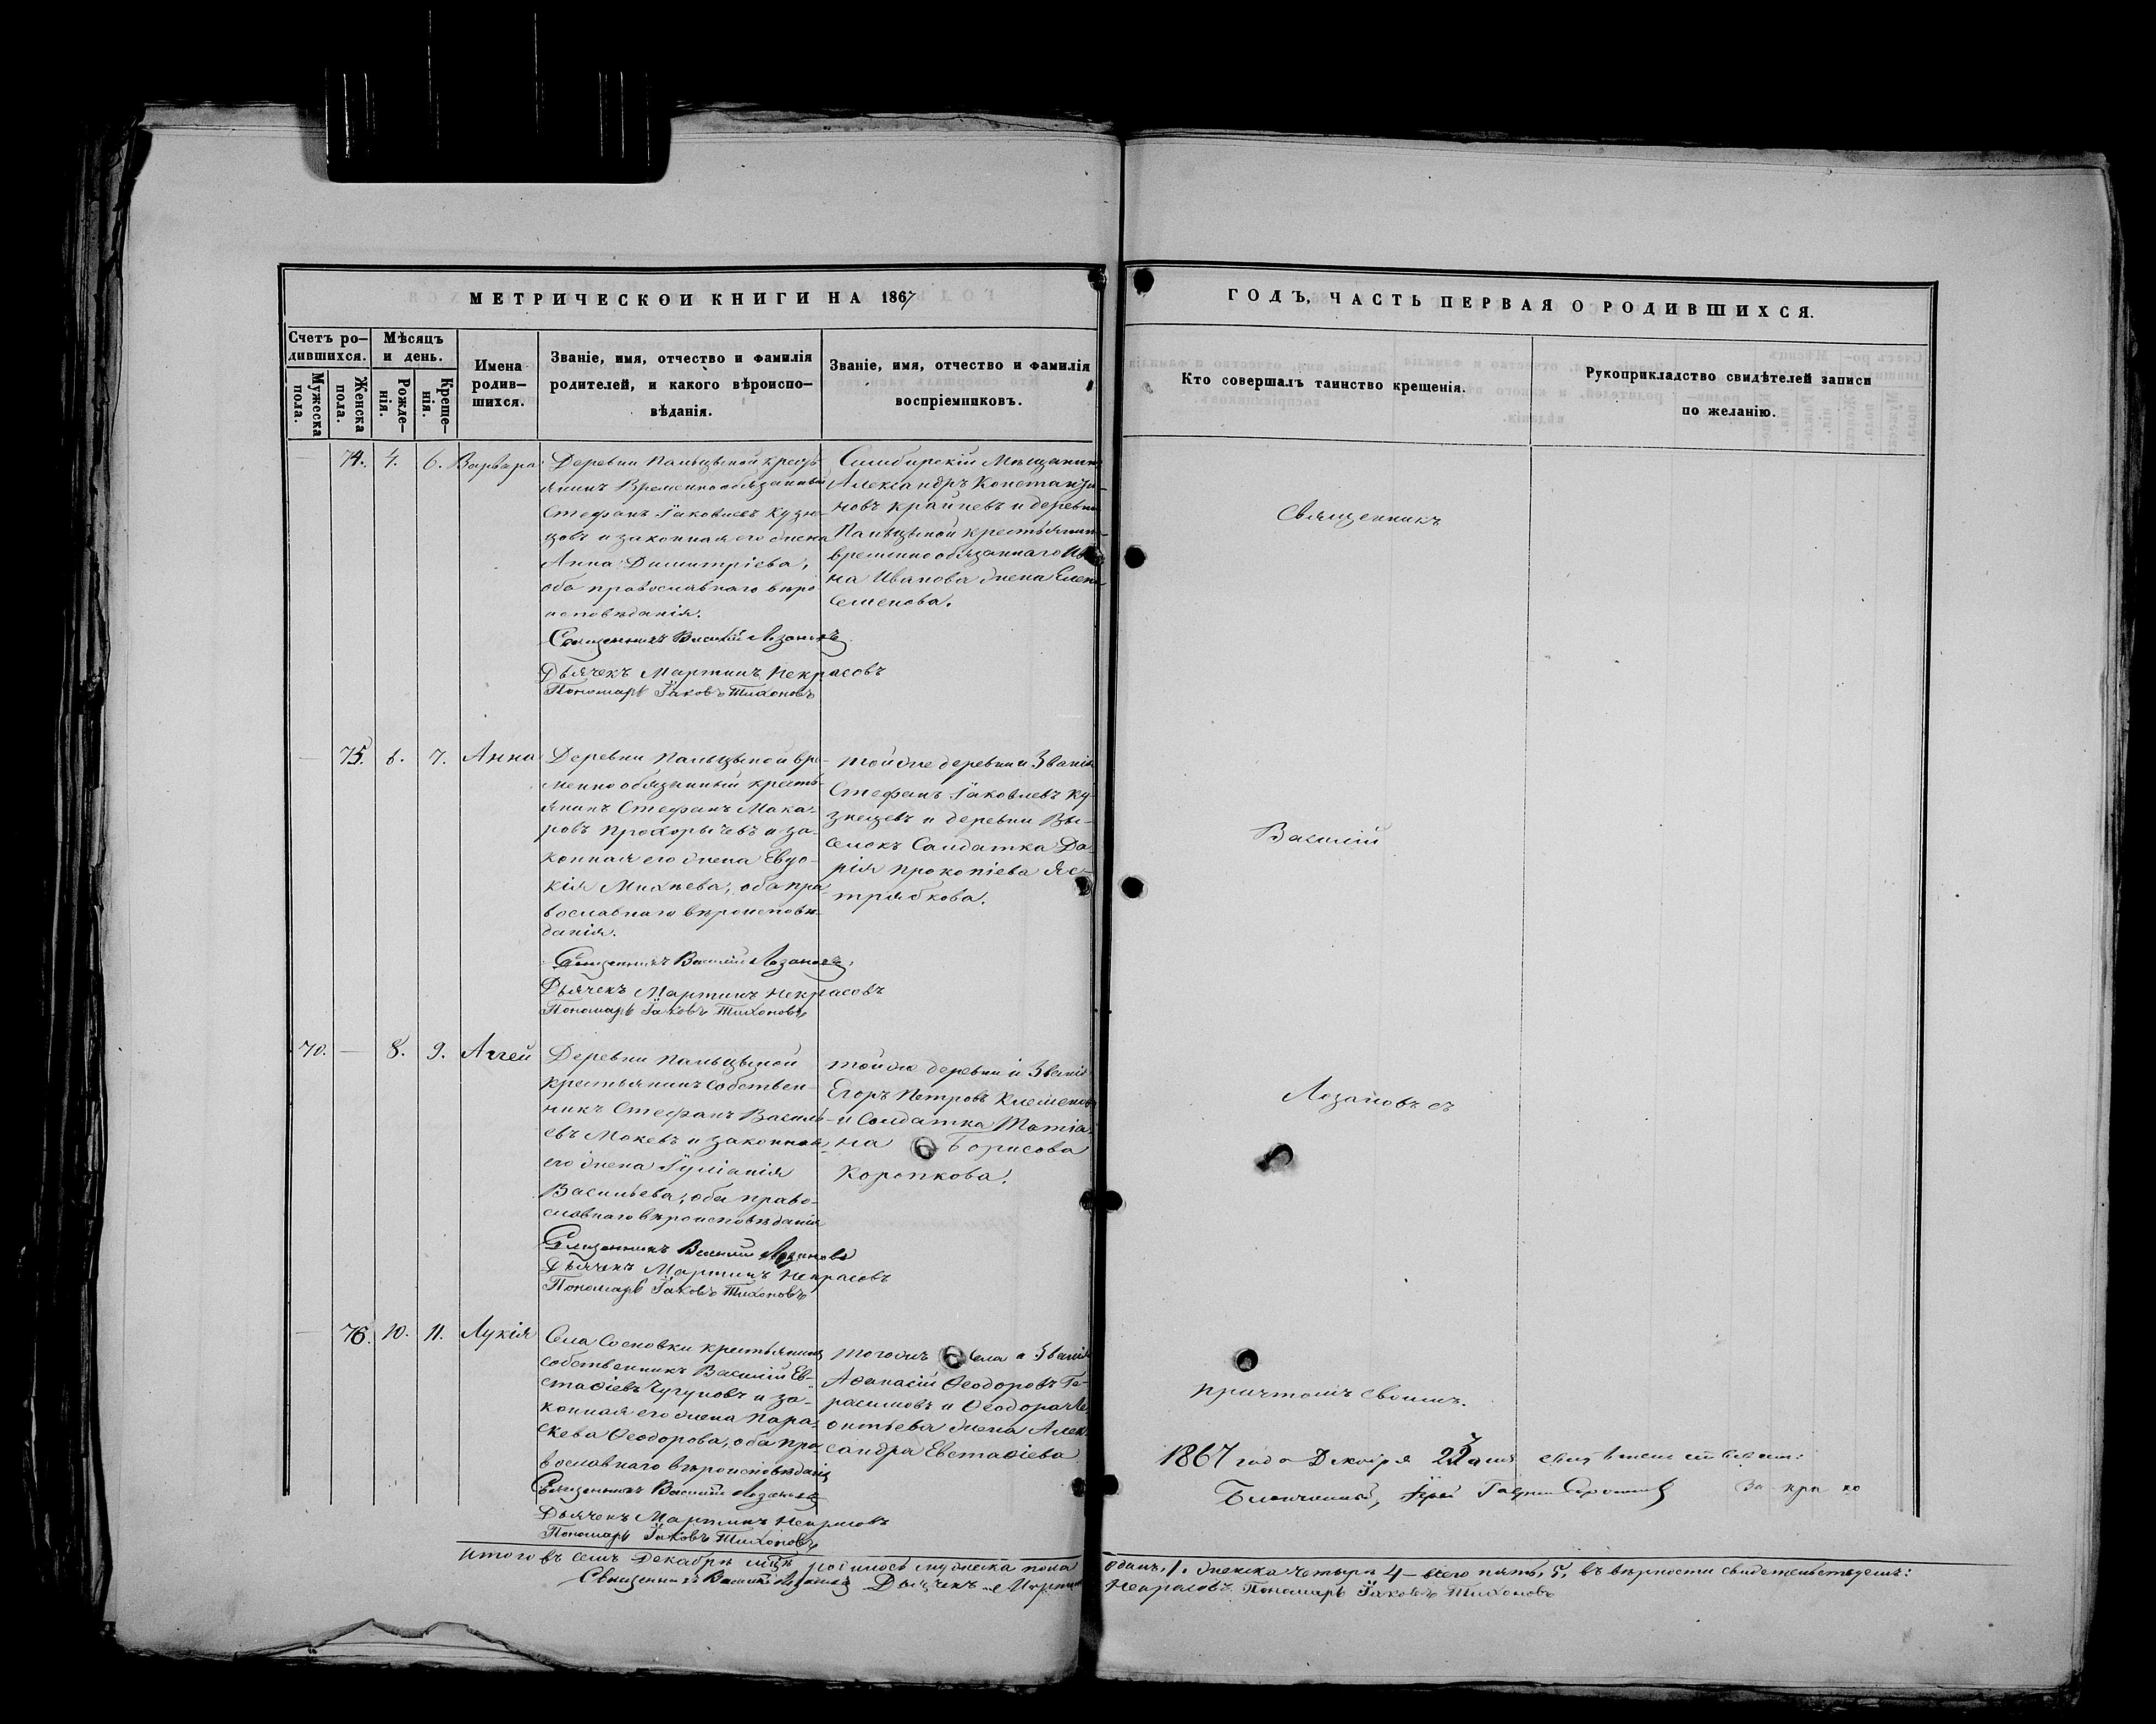 МЕТРИЧЕСКОЙ КНИГИ НА 1867
Счетъ ро-
дившихся.
Мужеска
пола.
Женска
пола.
Мѣсяцъ
и день.
Рожде-
нія.
Креще-
нія.
Имена
родив-
шихся.
Званіе, имя, отчество и фамилія
родителей, и какого вѣроиспо-
вѣданія.
Званіе, имя, отчество и фамилія
воспріемниковъ.
74. 4. 6. Варвара
Деревни Пальцыной кресть
янинъ Временнообязанный
Стефанъ Іаковлевъ Кузне-
цовъ и законная его жена
Анна Димитріева,
оба православнаго вѣро
исповѣданія.
Священникъ Василій Лозановъ
Дьячекъ Мартинъ Некрасовъ
Пономарь Іаковъ Тихоновъ
Симбирскій Мѣщанинъ
Александръ Константи-
новъ Крайневъ и деревни
Пальцыной крестьянин-
временнообязаннаго Ива
на Иванова жена Елена
Семенова.
75. 6. 7. Анна
Деревни Пальцыной вре-
менно обязанный кресть-
янинъ Стефанъ Мака-
ровъ Прохорычевъ и за-
конная его жена Евдо-
кія Михѣева, оба пра
вославнаго вѣроисповѣ-
данія.
Священникъ Василій Лозановъ
Дьячекъ Мартинъ Некрасовъ
Пономарь Іаковъ Тихоновъ
Той же деревни и Званія
Стефанъ Іаковлевъ Ку-
знецевъ и деревни Вы-
селокъ Салдатка Да-
рія Прокопіева Яс-
трябкова.
70. 8. 9. Аггей
Деревни Пальцыной
крестьянинъ собствен-
никъ Стефанъ Василь
евъ Мокевъ и законная
его жена Іуліанія
Васильева, оба право-
славнаго вѣроисповѣданія
Священникъ Василій Лозановъ
Дьячекъ Мартинъ Некрасовъ
Пономарь Іаковъ Тихоновъ
той же деревни и Званія
Егоръ Петровъ Клеменовъ
и Солдатка Татіа-
на Борисова
Коропкова.
76. 10. 11. Лукія
Села Сосновки крестьянинъ
собственникъ Василій Ев-
стафіевъ Чугуновъ и за-
конная его жена Пара-
скева Ѳеодорова, оба пра
вославнаго вѣроисповѣданія
Священникъ Василій Лозановъ
Дьячекъ Мартинъ Некрасовъ
Пономарь Іаковъ Тихоновъ
тогожъ села и Званія
Аѳанасій Ѳеодоровъ Ге-
расимовъ и Ѳеодора Ле
онтьева жена Алек-
сандра Евстафіева
ГОДЪ, ЧАСТЬ ПЕРВАЯ О РОДИВШИХСЯ.
Кто совершалъ таинство крещенія.
Рукоприкладство свидѣтелей записи
по желанію.
Священникъ
Василій
Лозановъ съ
причтомъ своимъ.
1867 года Декабря
Благочинный, Іерей
Итого въ семъ Декабрѣ мцѣ родилось мужеска пола одинъ, 1. женска четыре 4 – всего пять, 5, въ вѣрности свидетельствуемъ:
Священникъ Василій Лозановъ Дьячекъ Мартинъ Некрасовъ Пономарь Іаковъ Тихоновъ